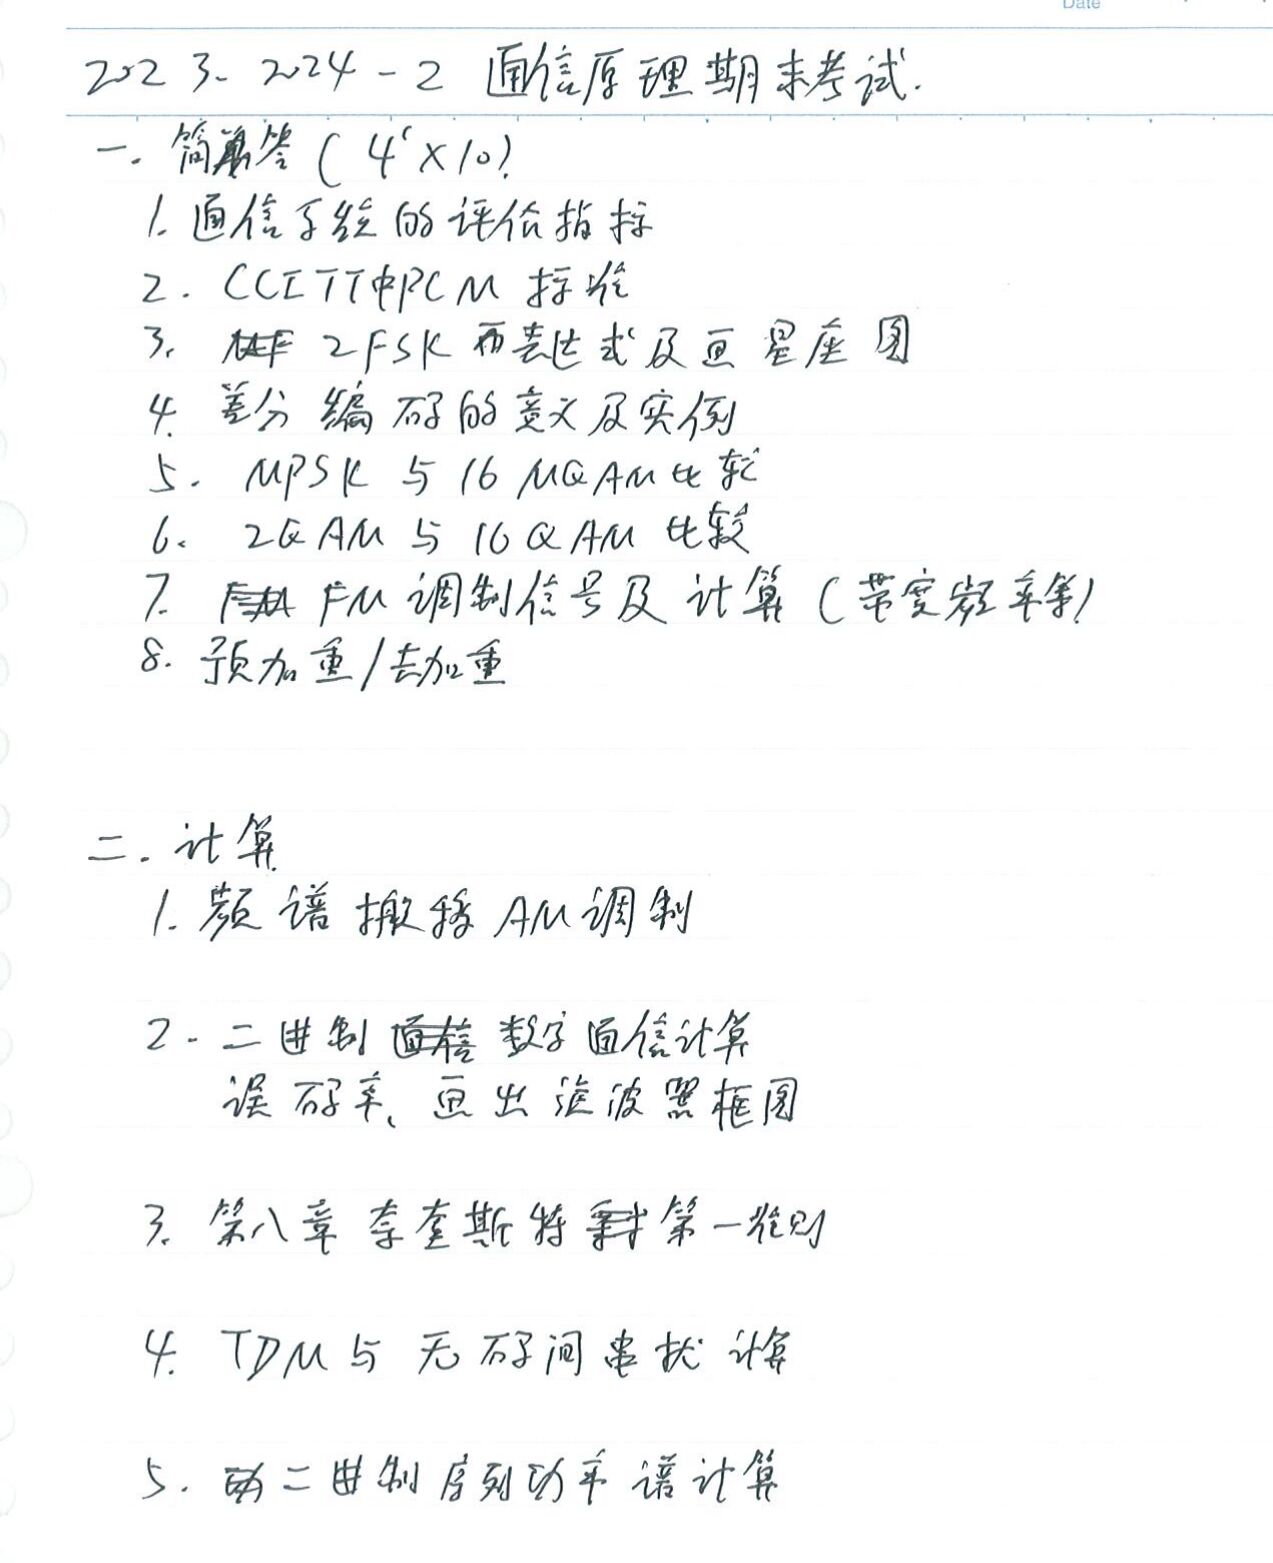 Date
2023-2024-2 通信原理期末考试.
一. 简答 (4'×10)
1. 通信系统的评价指标
2. CCITT中PCM 标准
3. 2FSK 表达式及画星座图
4. 差分编码的意义及实例
5. MPSK 与 16 MQAM 比较
6. 2QAM 与 16QAM 比较
7. FM 调制信号及计算 (带宽频率等)
8. 预加重/去加重
二. 计算
1. 频谱搬移 AM调制
2. 二进制 数字通信计算
误码率、画出滤波器框图
3. 第八章 奈奎斯特 第一准则
4. TDM与 无码间串扰 计算
5. 二进制序列功率谱计算